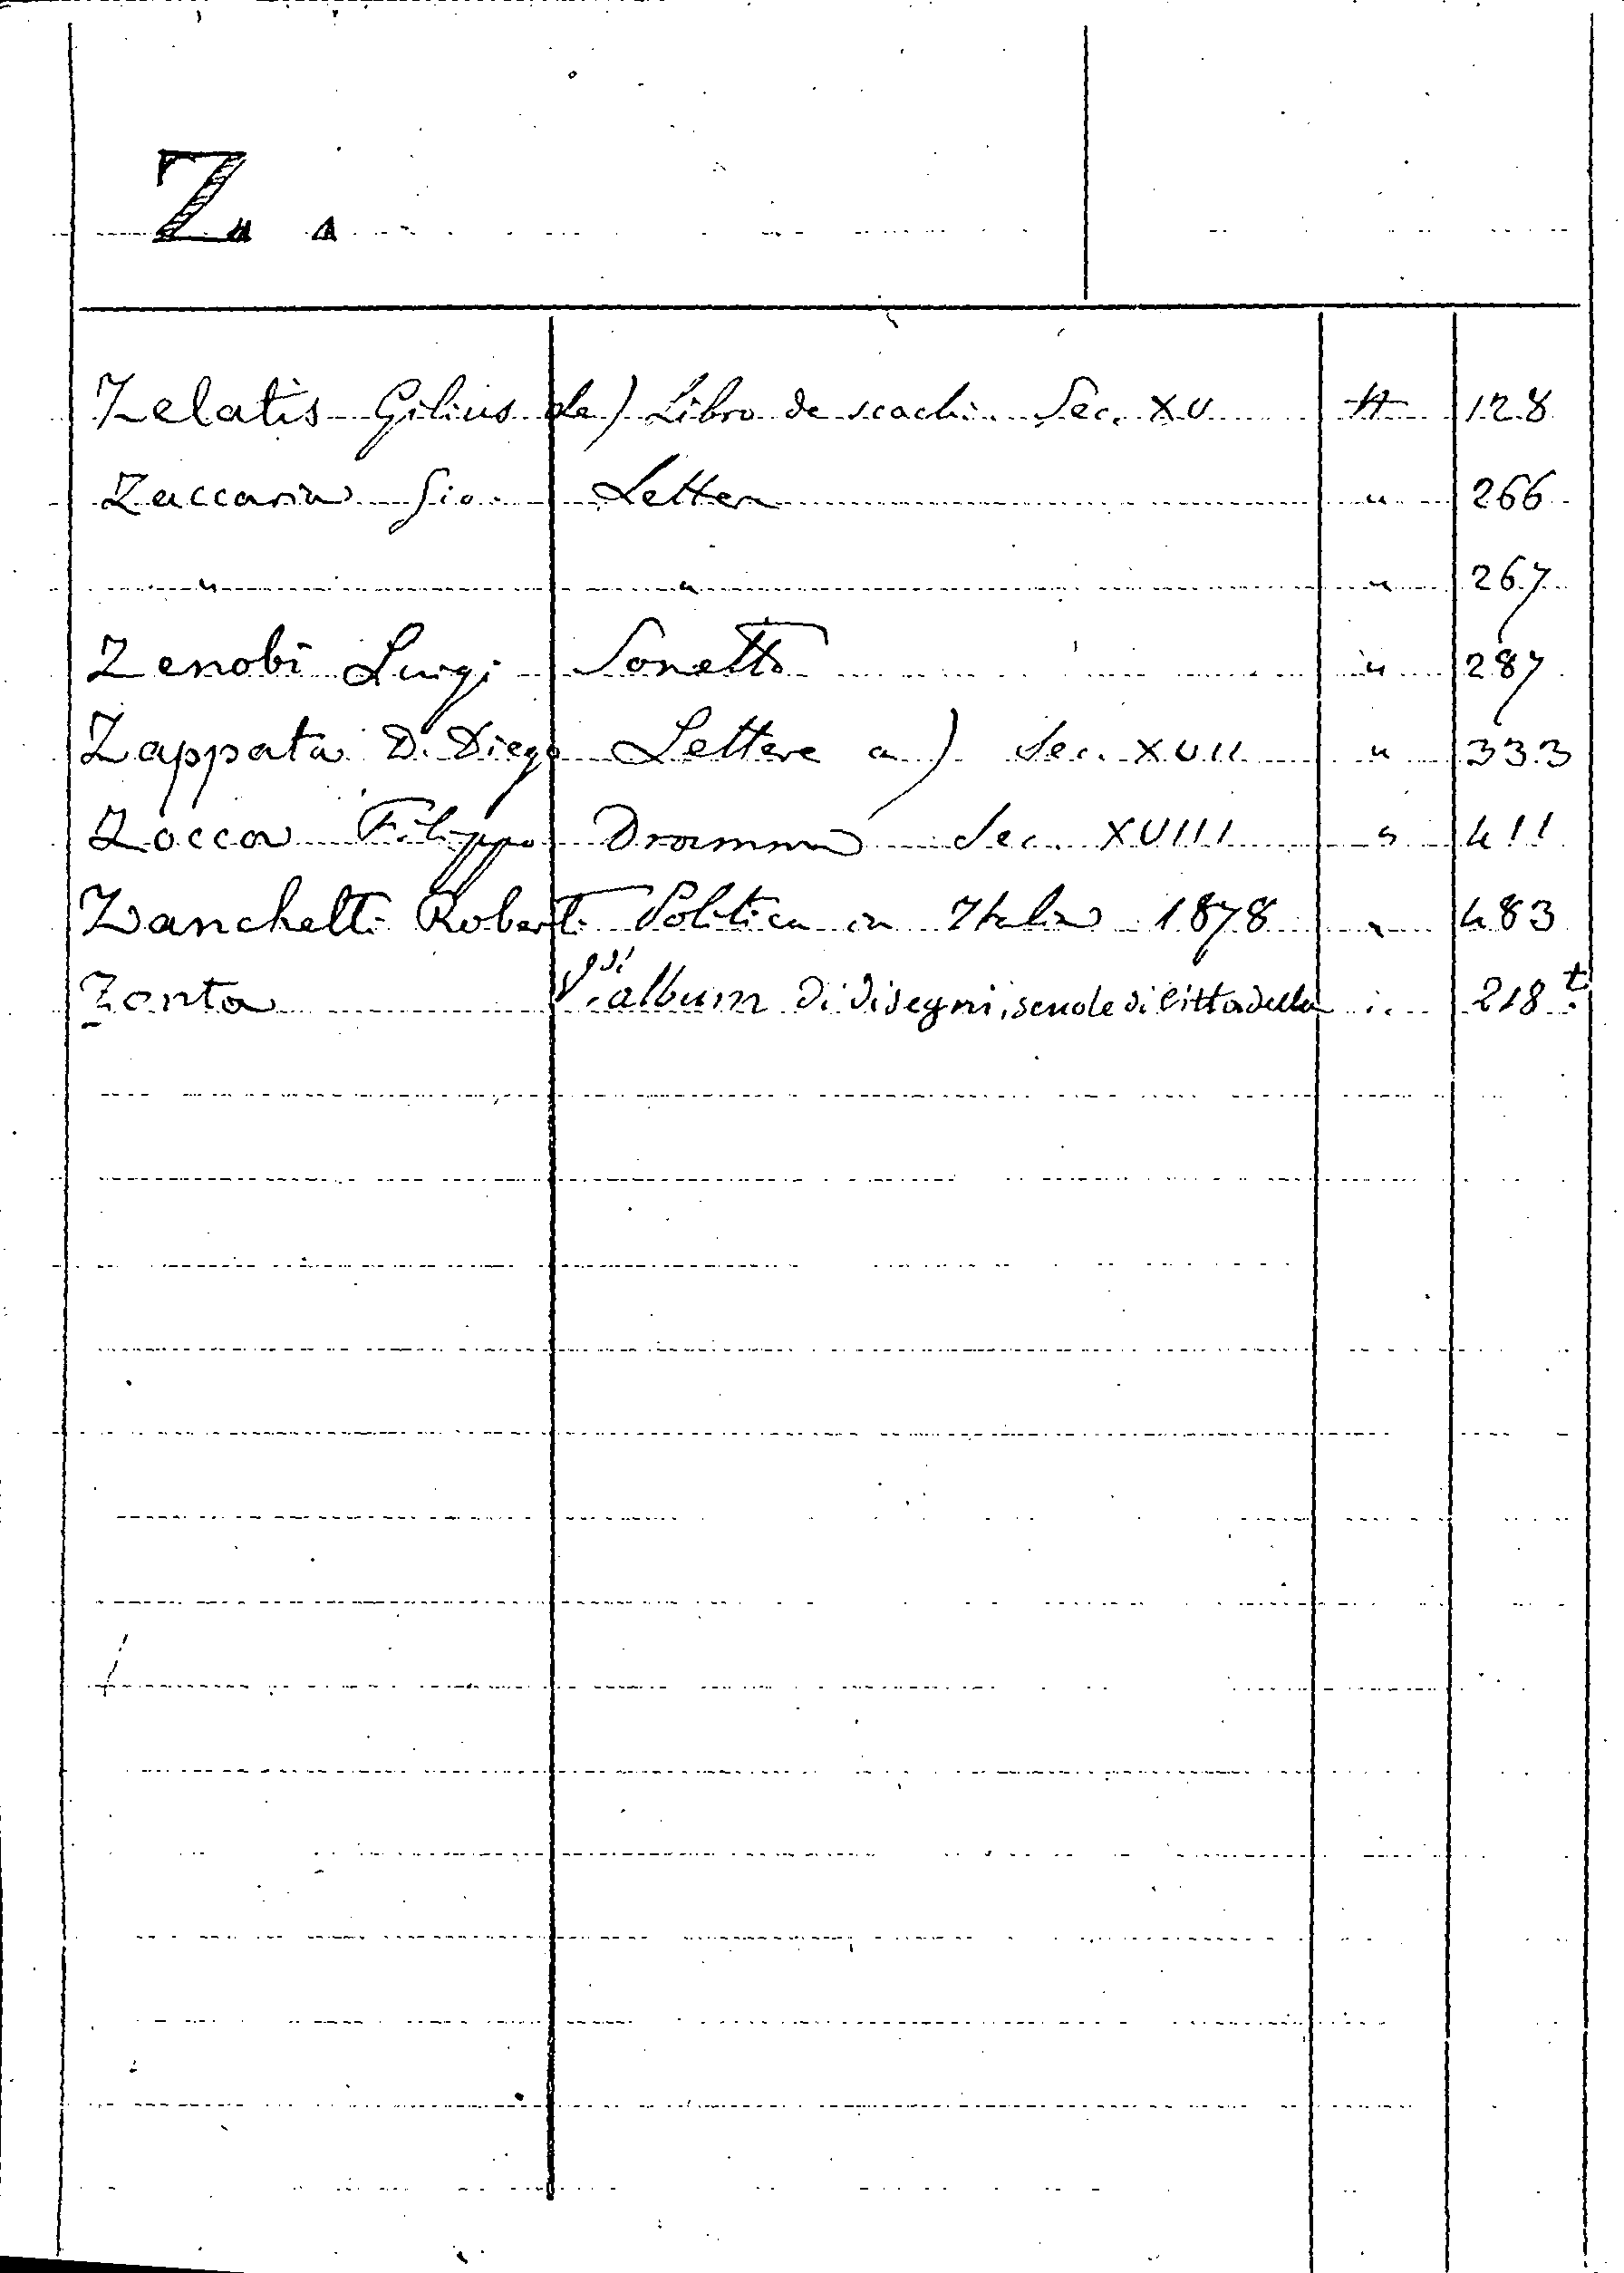 Z..
Zelatis Gilius de) Libro de scachi. Sec. XV H 128
Zaccaria Gio. Lettera " 266
" " " 267
Zenobi Luigi Sonetto " 287
Zappata D. Diego Lettere a) Sec. XVII " 333
Zocca Filippo Dramma Sec. XVIII " 411
Zanchetti Roberti Politica in Italia 1878 " 483
Zonta album di disegni, scuole di Cittadella 218 t.